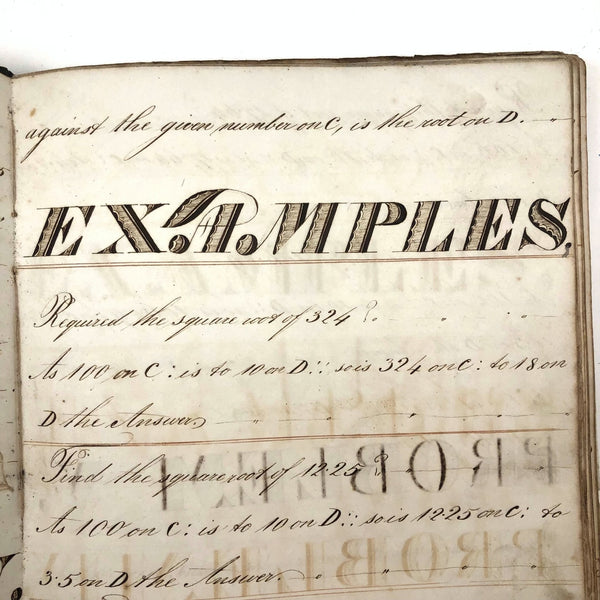 against the given number on C, is the root on D.
EXAMPLES,
Required the square root of 324 ?
As 100 on C : is to 10 on D :: so is 324 on C : to 18 on
D the Answer.
Find the square root of 12.25 ?
As 100 on C : is to 10 on D :: so is 12.25 on C : to
3.5 on D the Answer.